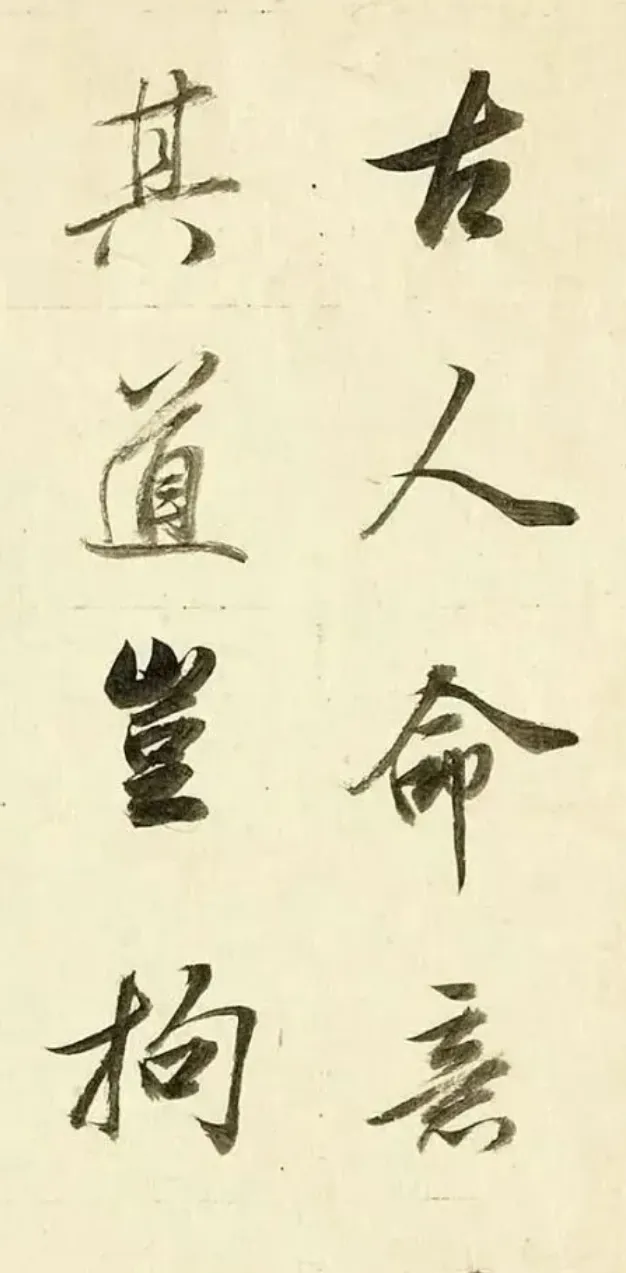 古人命意
其道豈拘